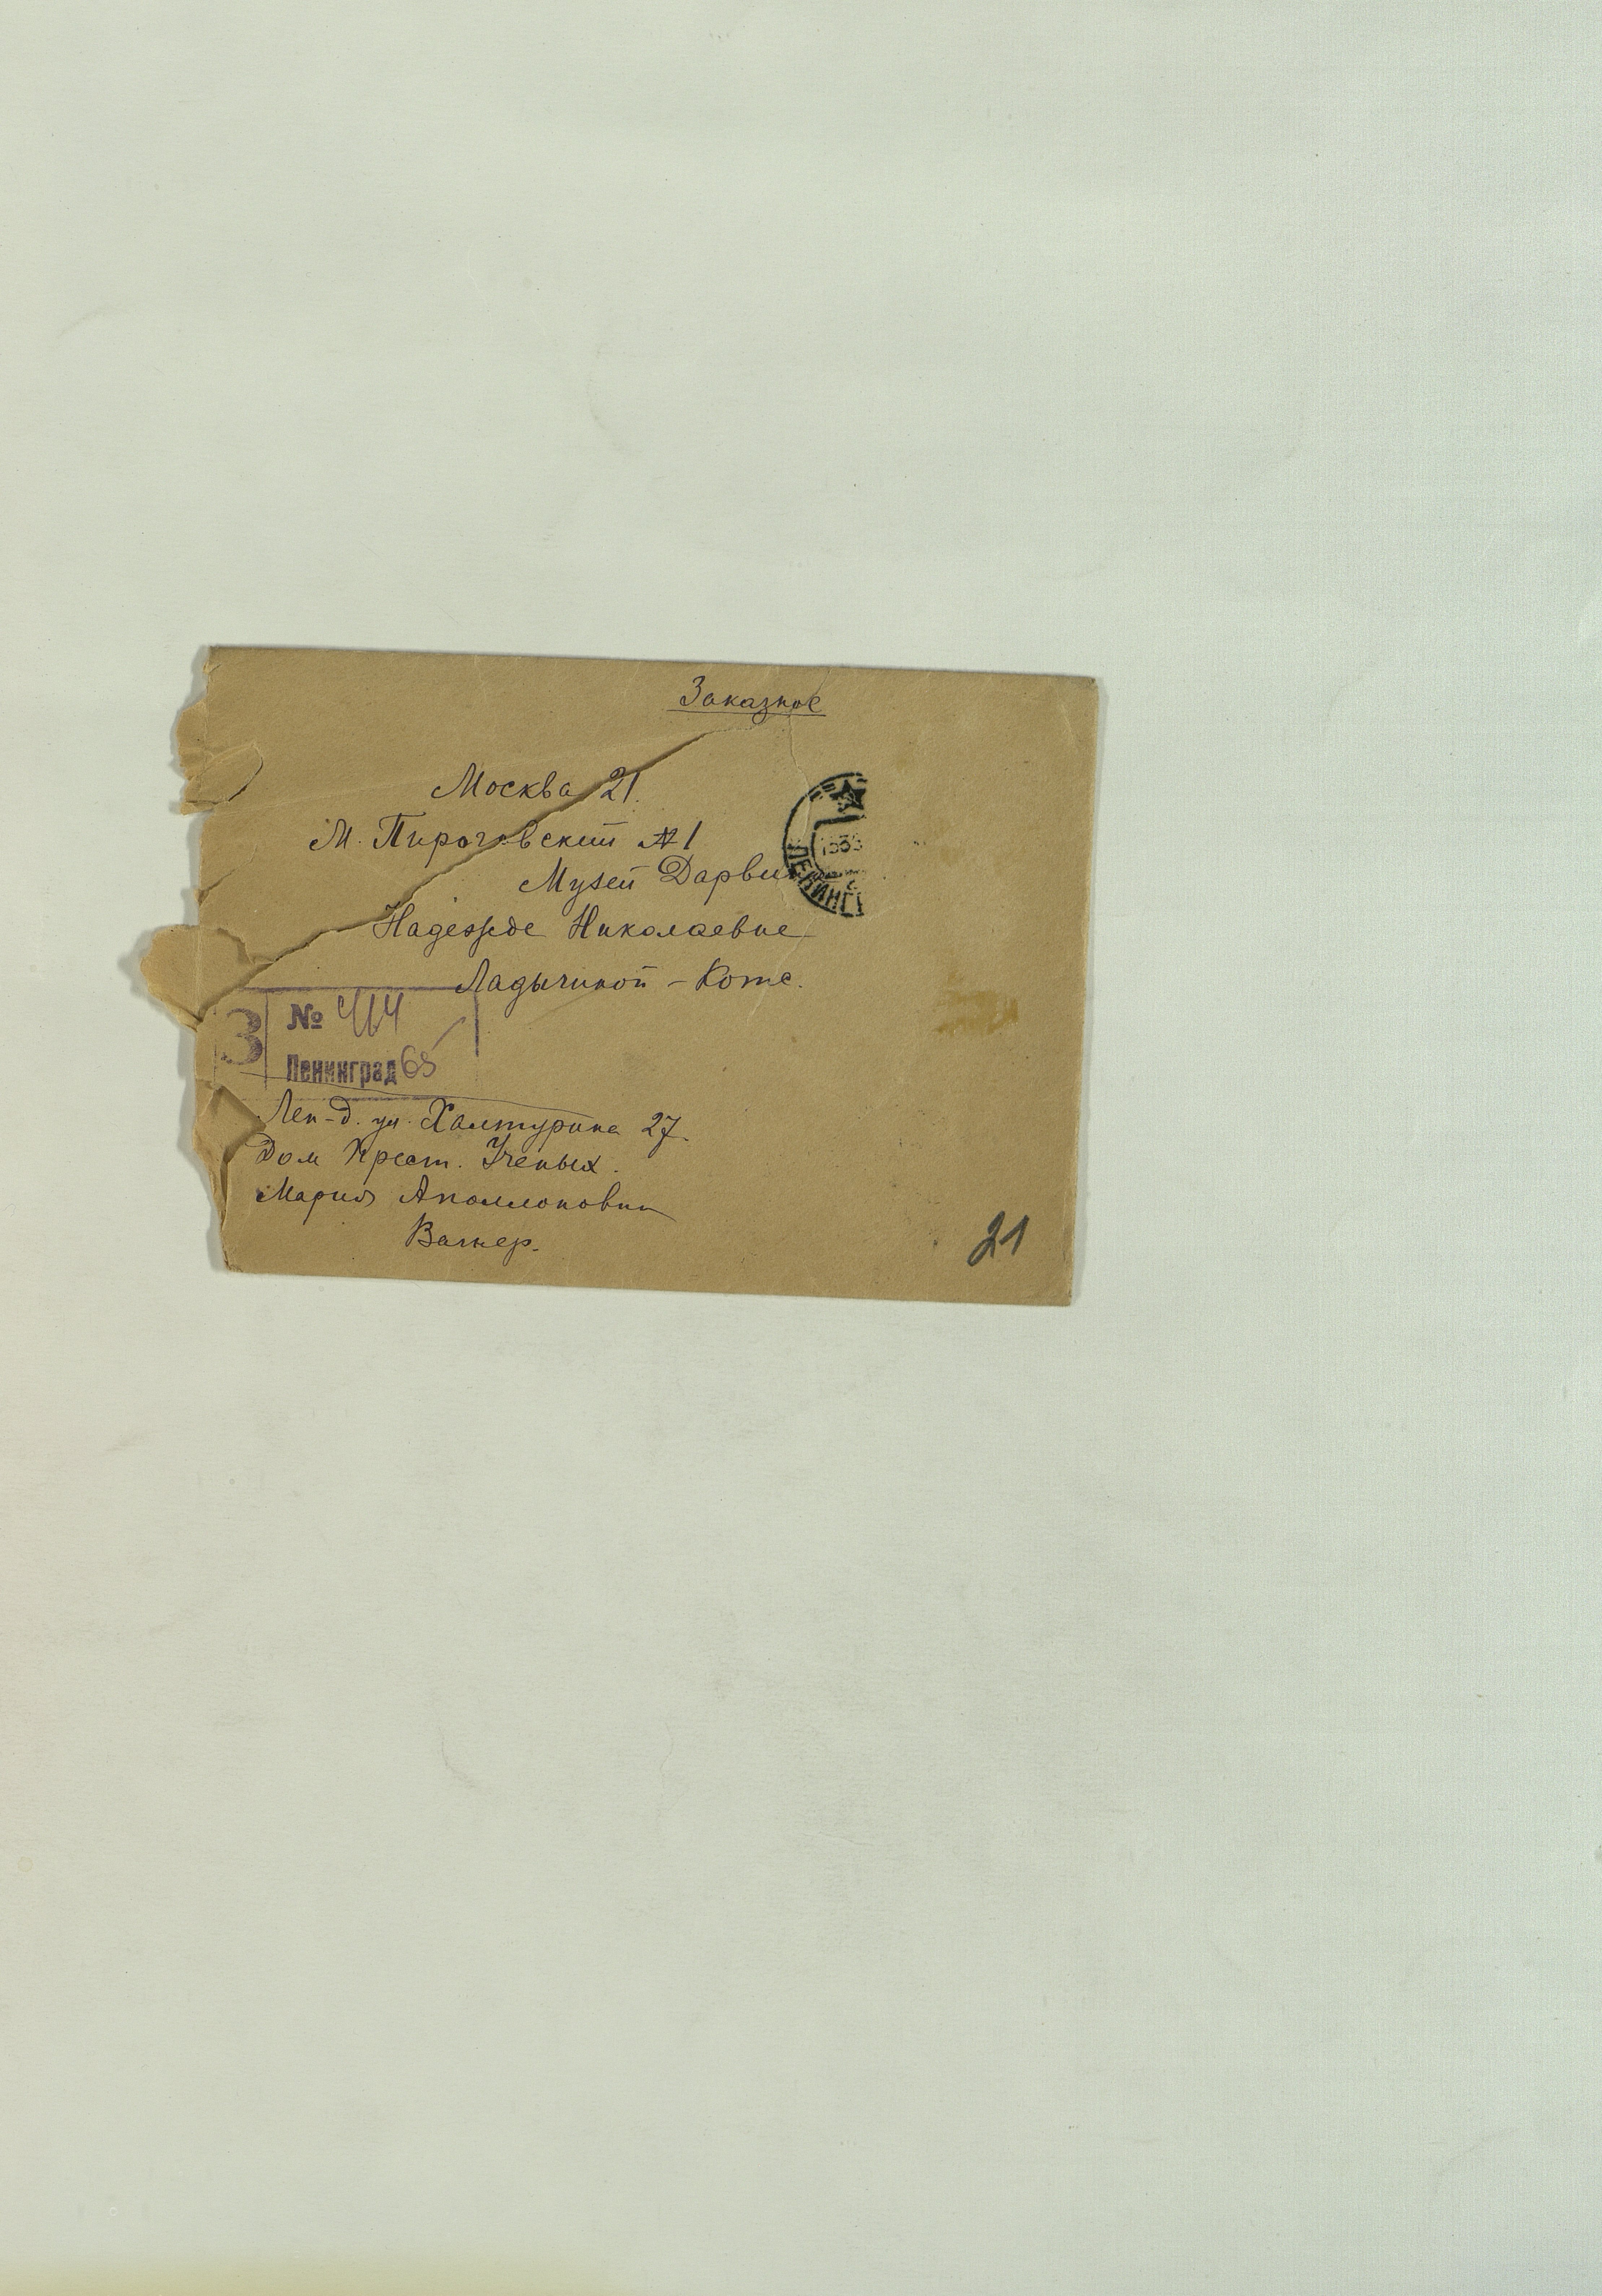 Заказное
Москва 21.
М. Пироговский № 1
Музей Дарвина
Надежде Николаевне
Ладыгиной - Котс.
З № 414
Ленинград 65
Лен-д. ул. Халтурина 27.
Дом Крест. Ученых.
Мария Аполлоновна
Вагнер.
21